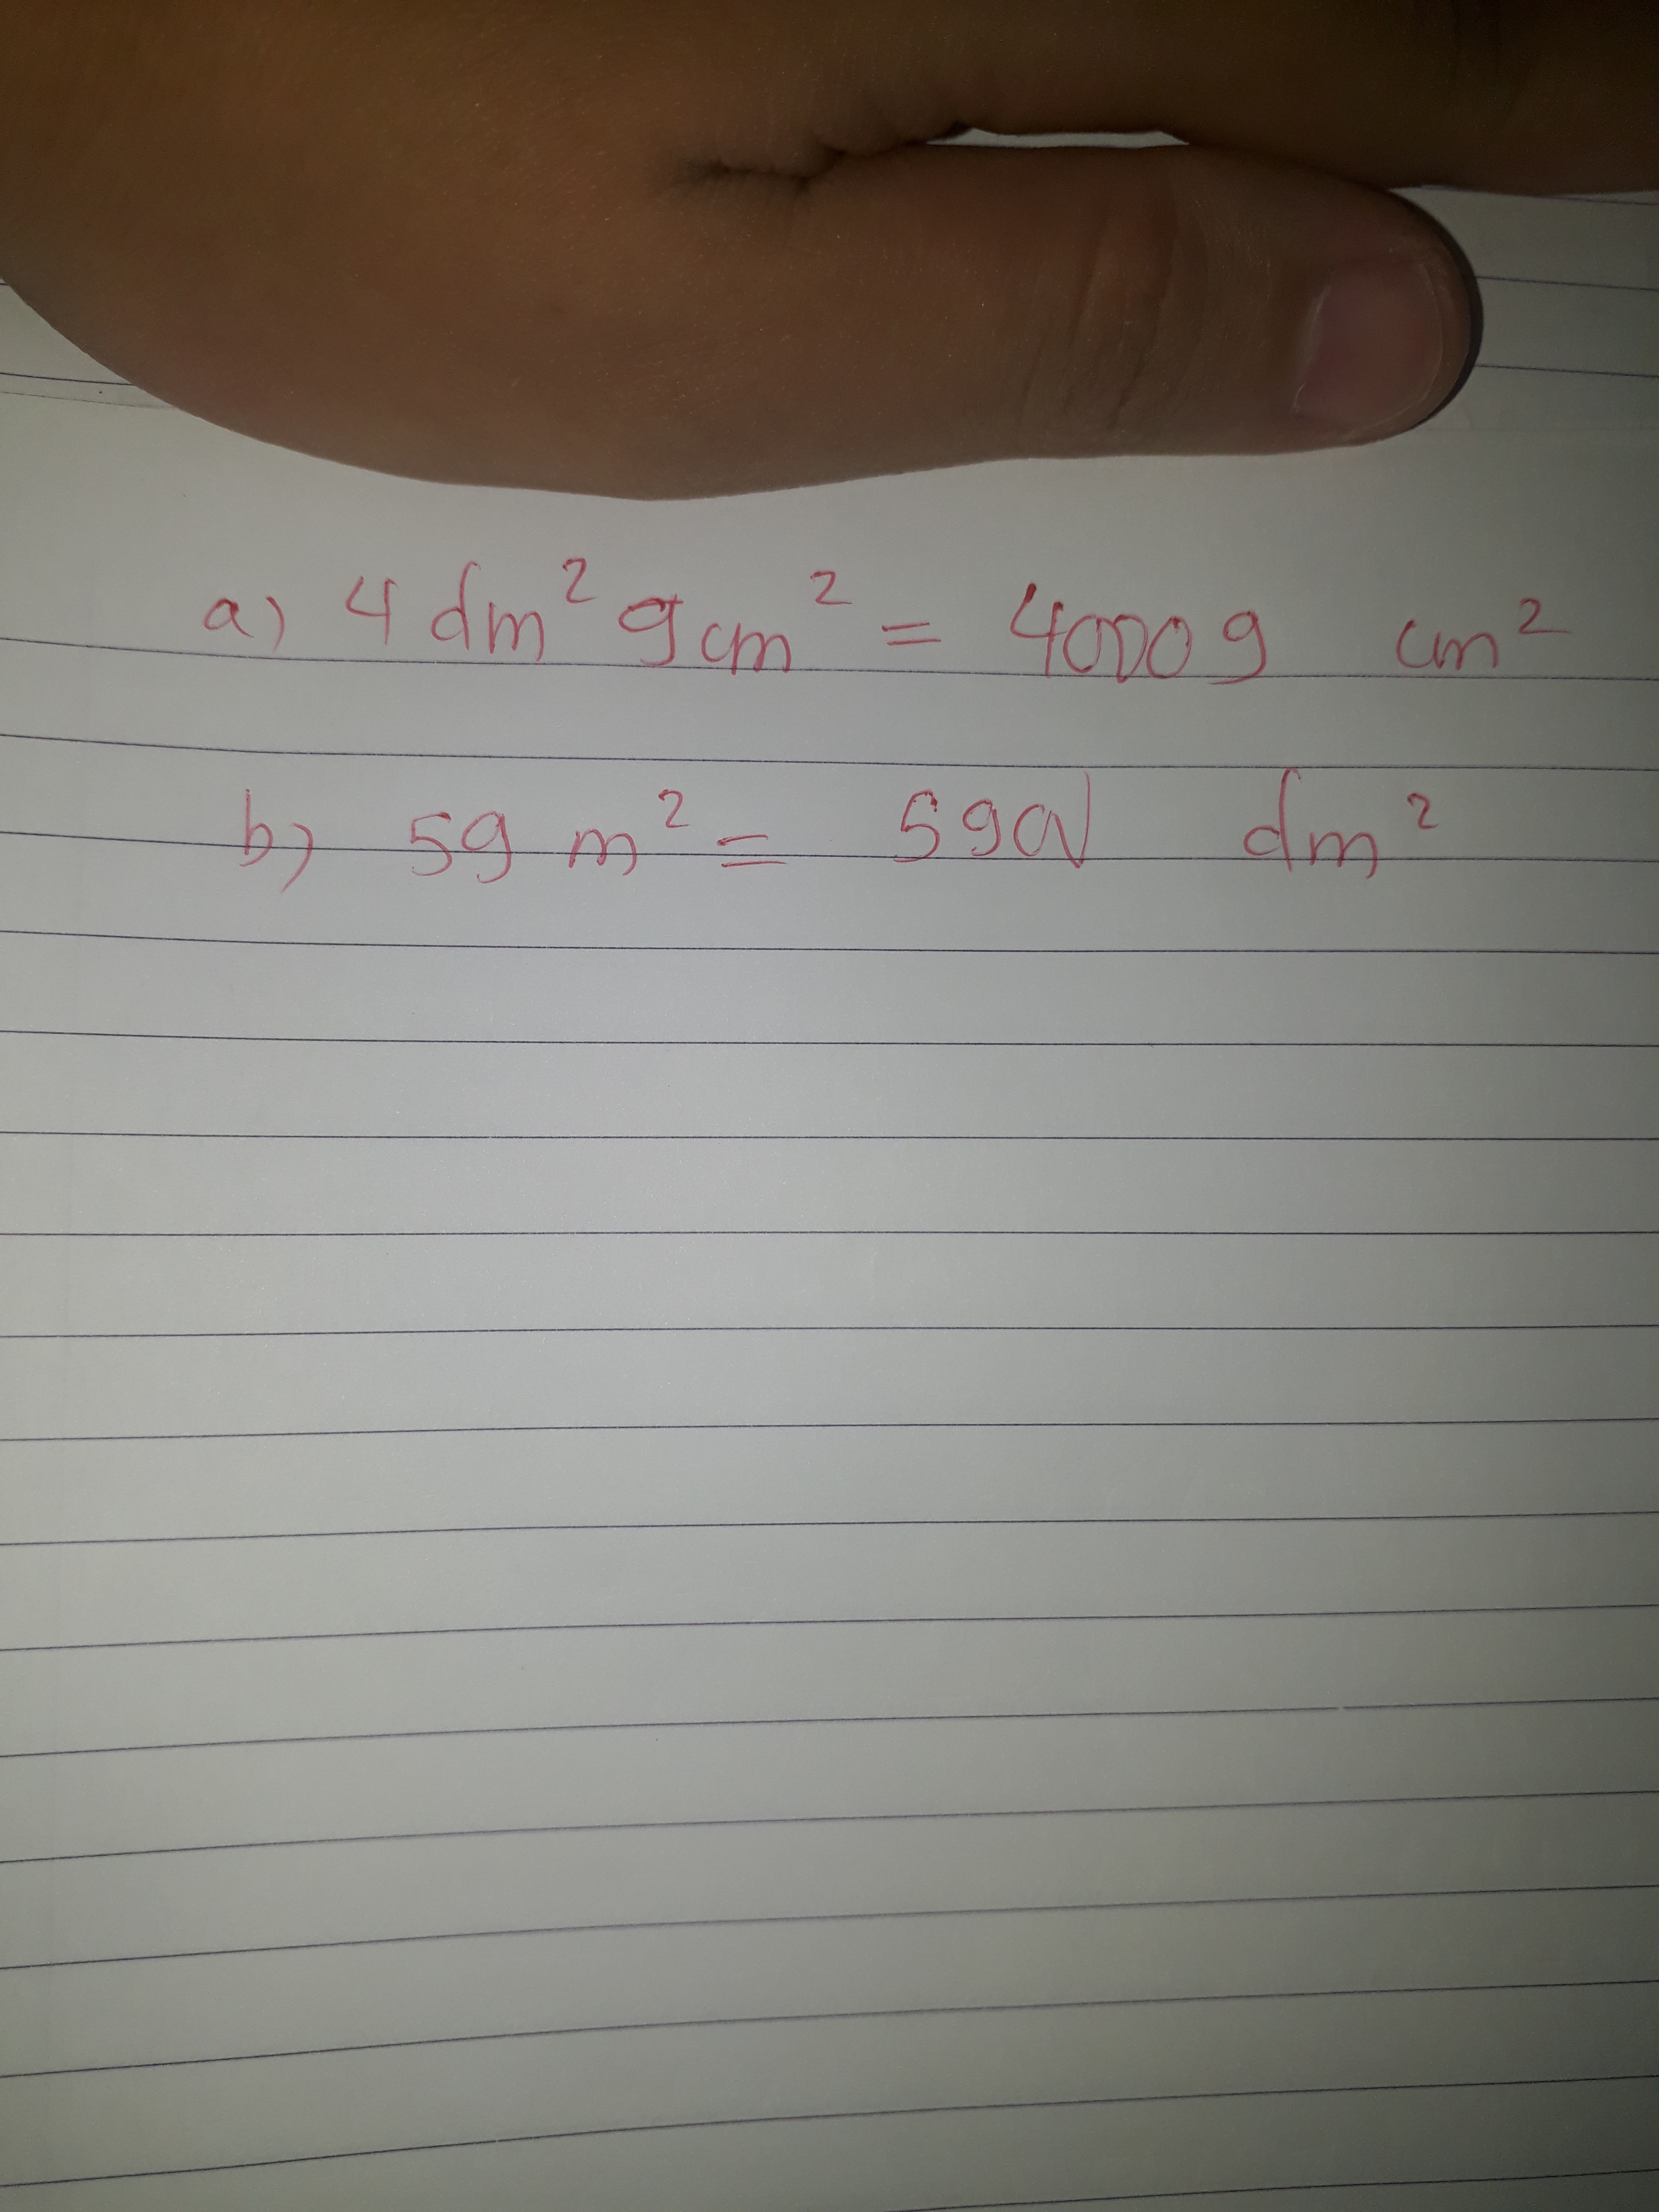 a) 4 dm² 9 cm² = 40009 cm²
b) 59 m² = 5900 dm²